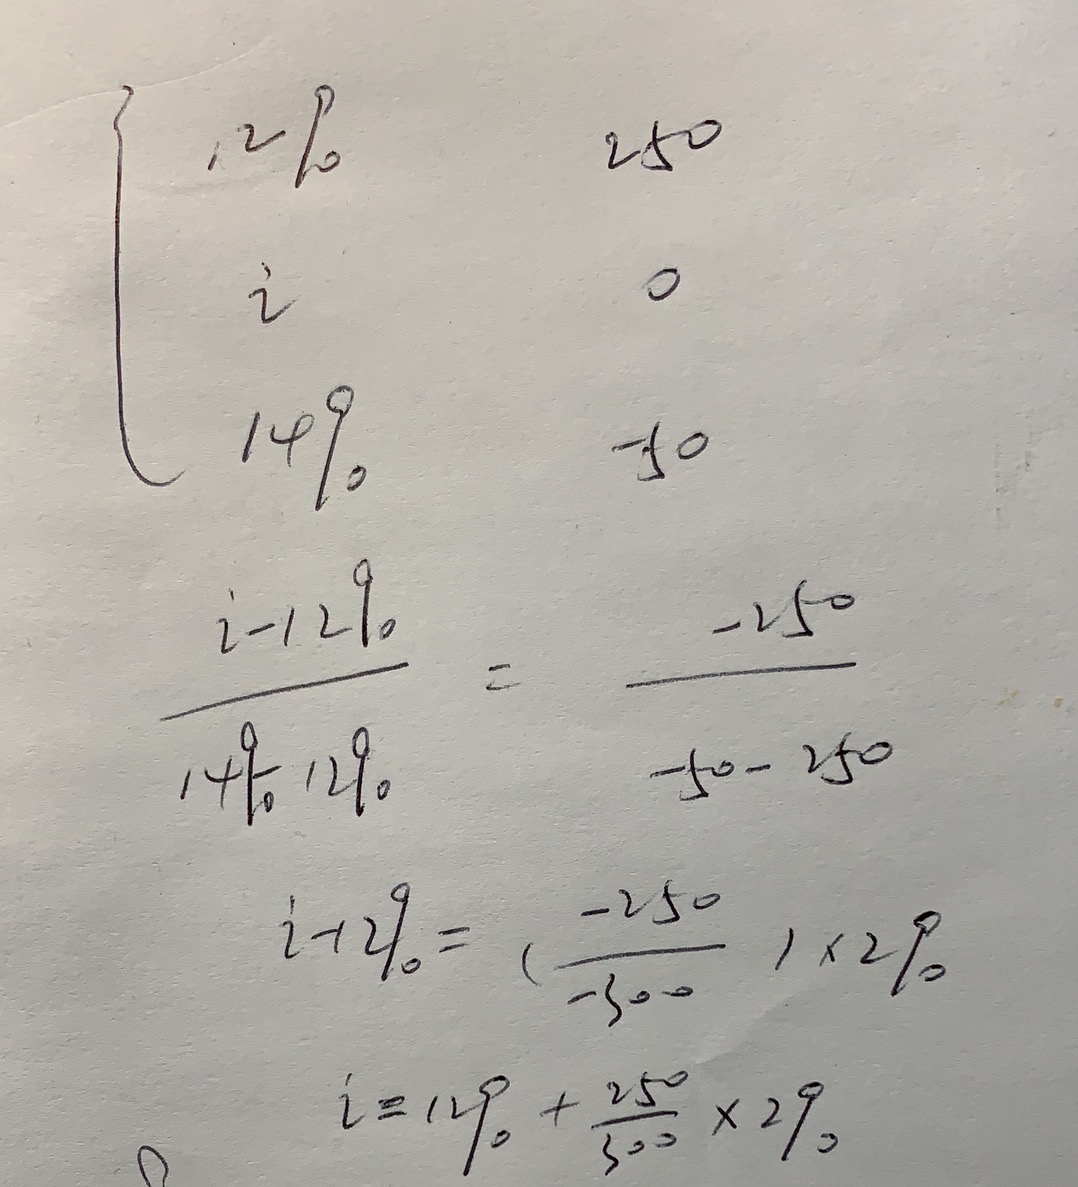 12% 250
i 0
14% -50
i-12% / 14%-12% = -250 / -50-250
i-12% = ( -250 / -300 ) × 2%
i = 12% + 250/300 × 2%